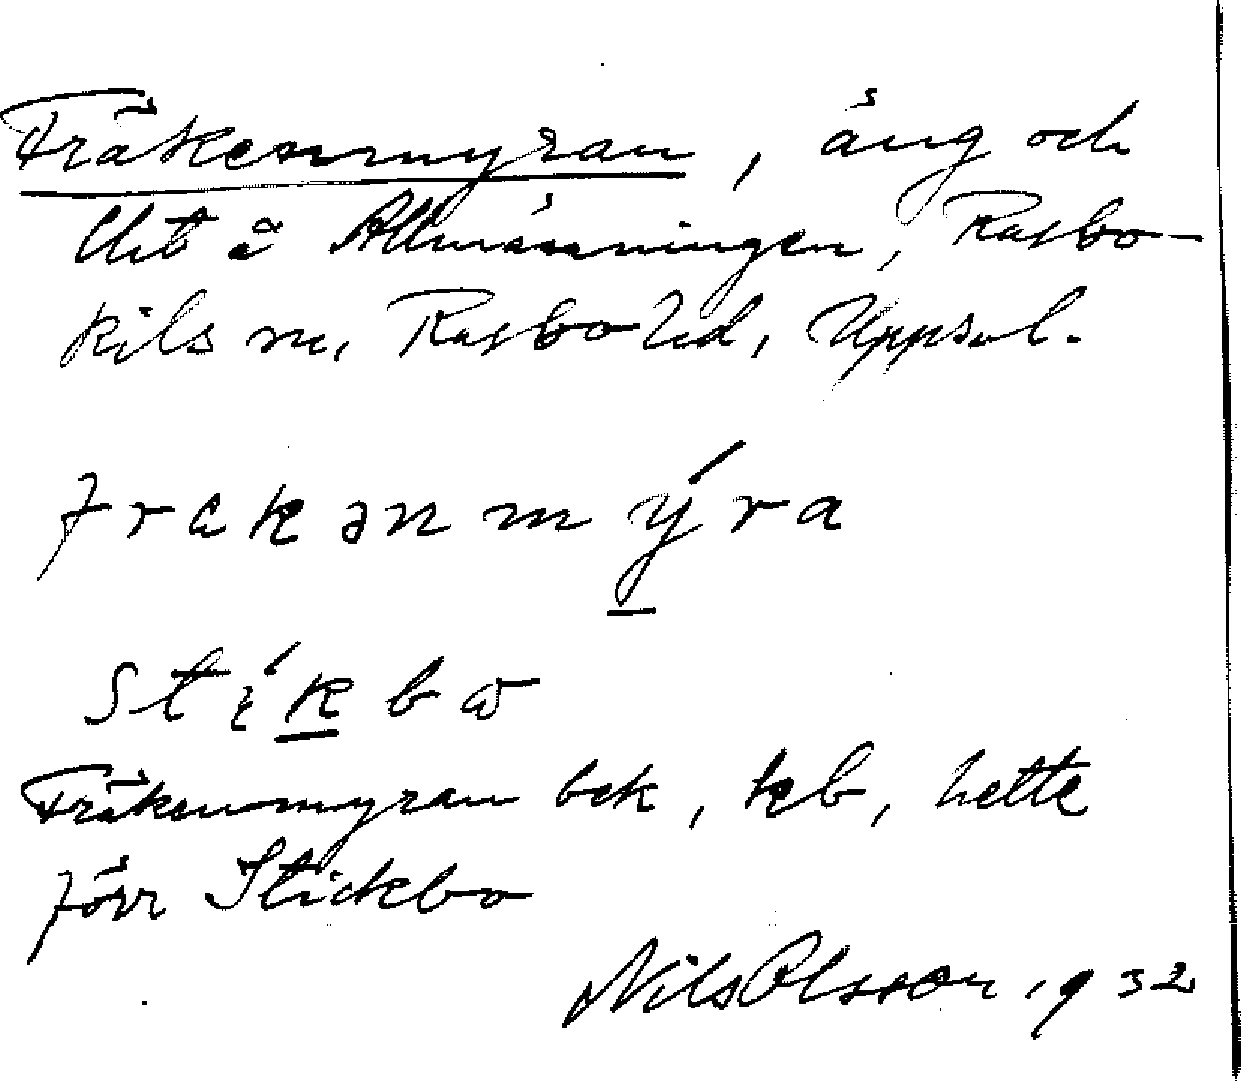 Fräkenmyran, äng och
lht å Allmänningen, Rasbo-
kils sn, Rasbo hd, Uppsal.
frakənmýra
Stı́kbω
Fräkenmyran bek, kb, hette
förr Stickbo
Nils Olsson, 1932